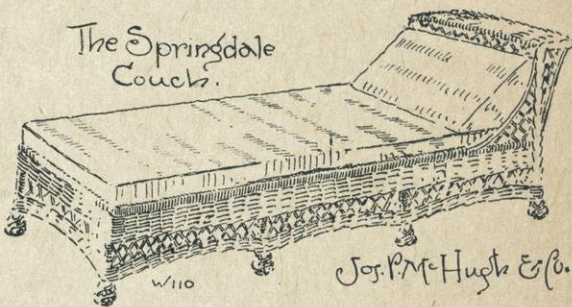 The Springdale
Couch.
W110
Jos. P. McHugh & Co.